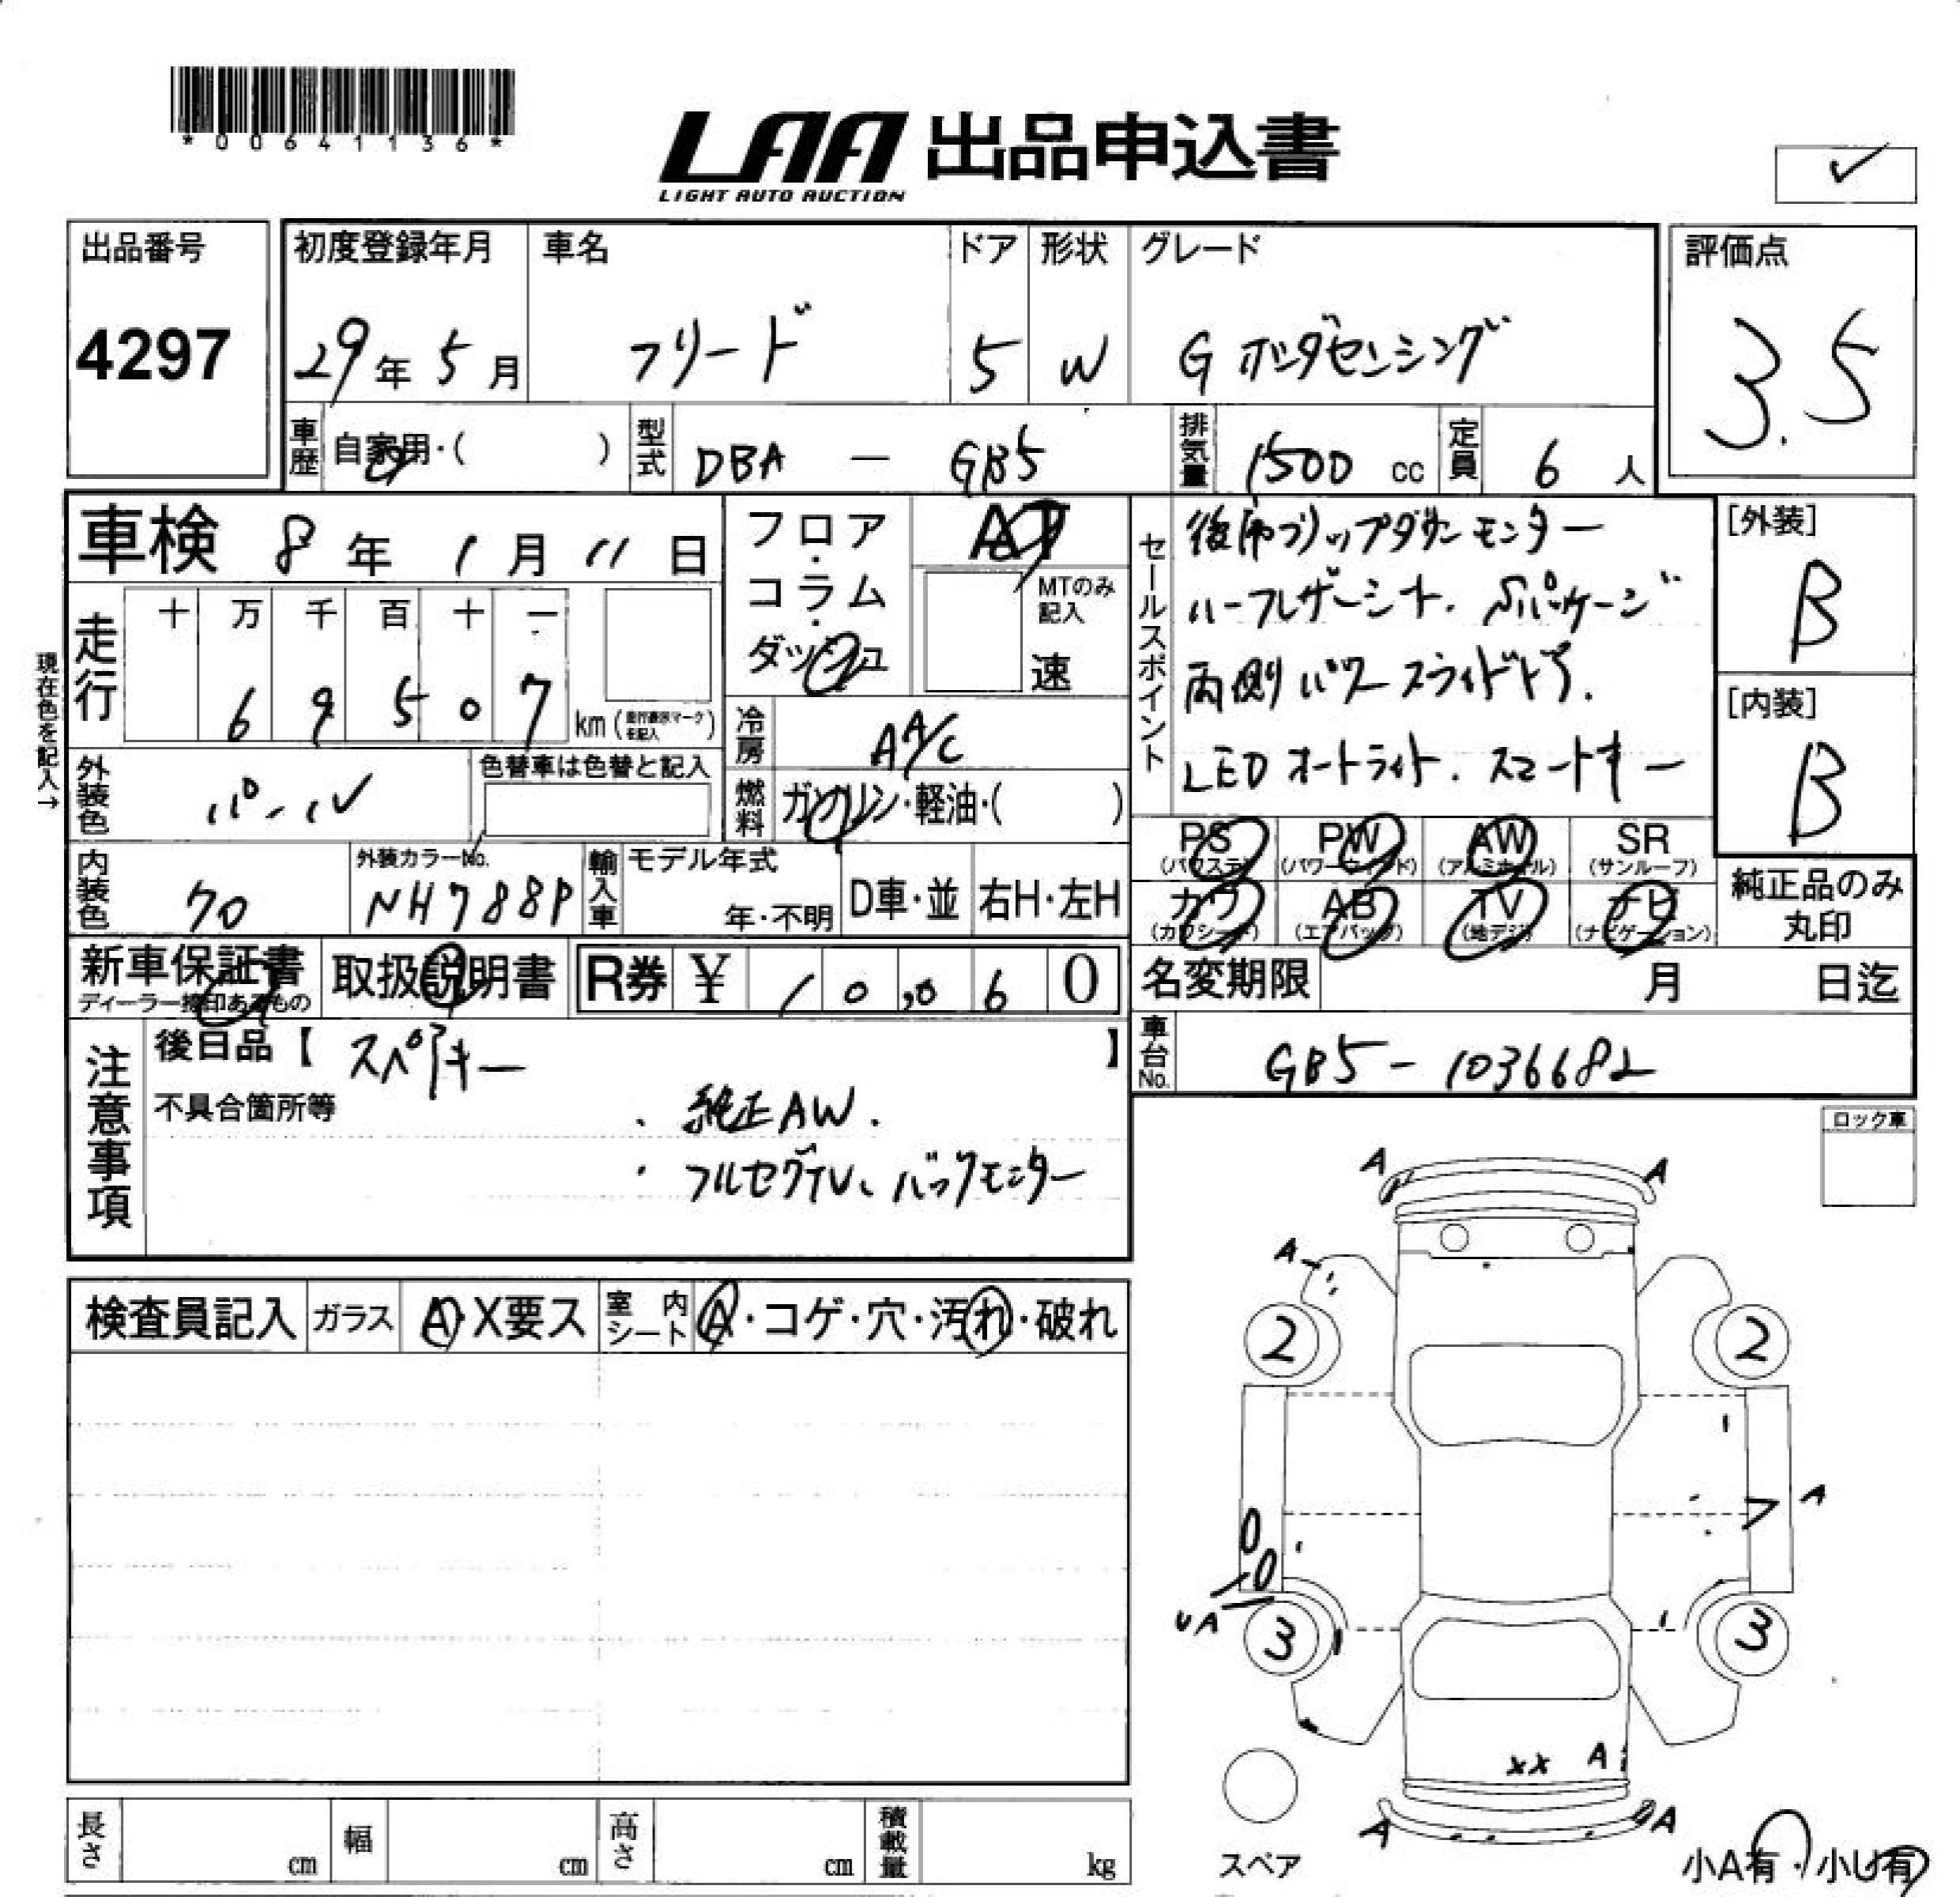 *00641136*
LAA 出品申込書
LIGHT AUTO AUCTION
出品番号
4297
初度登録年月
29年5月
車名
フリード
ドア
5
形状
W
グレード
G ホンダセンシング
評価点
3.5
車歴 自家用・( )
型式 DBA - GB5
排気量 1500 cc
定員 6 人
車検 8年1月11日
フロア・コラム・ダッシュ
AT
MTのみ記入
速
走行
十 万 千 百 十 一
6 9 5 0 7 km (走行表示マークを記入)
現在色を記入→
冷房 AA/C
外装色 パール
色替車は色替と記入
燃料 ガソリン・軽油・( )
内装色 70
外装カラーNo.
NH788P
輸入車 モデル年式
年・不明 D車・並 右H・左H
セールスポイント
後席フリップダウンモニター
ハーフレザーシート.
両側パワースライドドア.
LEDオートライト. スマートキー
[外装]
B
[内装]
B
PS (パワステ) PW (パワーウィンド) AW (アルミホイル) SR (サンルーフ)
カワ (カワシート) AB (エアバッグ) TV (地デジ) ナビ (ナビゲーション)
純正品のみ丸印
新車保証書
ディーラー捺印あるもの
取扱説明書
R券 ¥ 10,060
名変期限 月 日迄
車台No. GB5-1036682
注意事項
後日品【 スペアキー 】
不具合箇所等
・純正AW.
・フルセグTV、バックモニター
ロック車
検査員記入 ガラス A・X要ス 室内シート A・コゲ・穴・汚れ・破れ
A A
A
2 2
A
UA
3 3
XX A
A A
スペア
小A有・小U有
長さ cm 幅 cm 高さ cm 積載量 kg